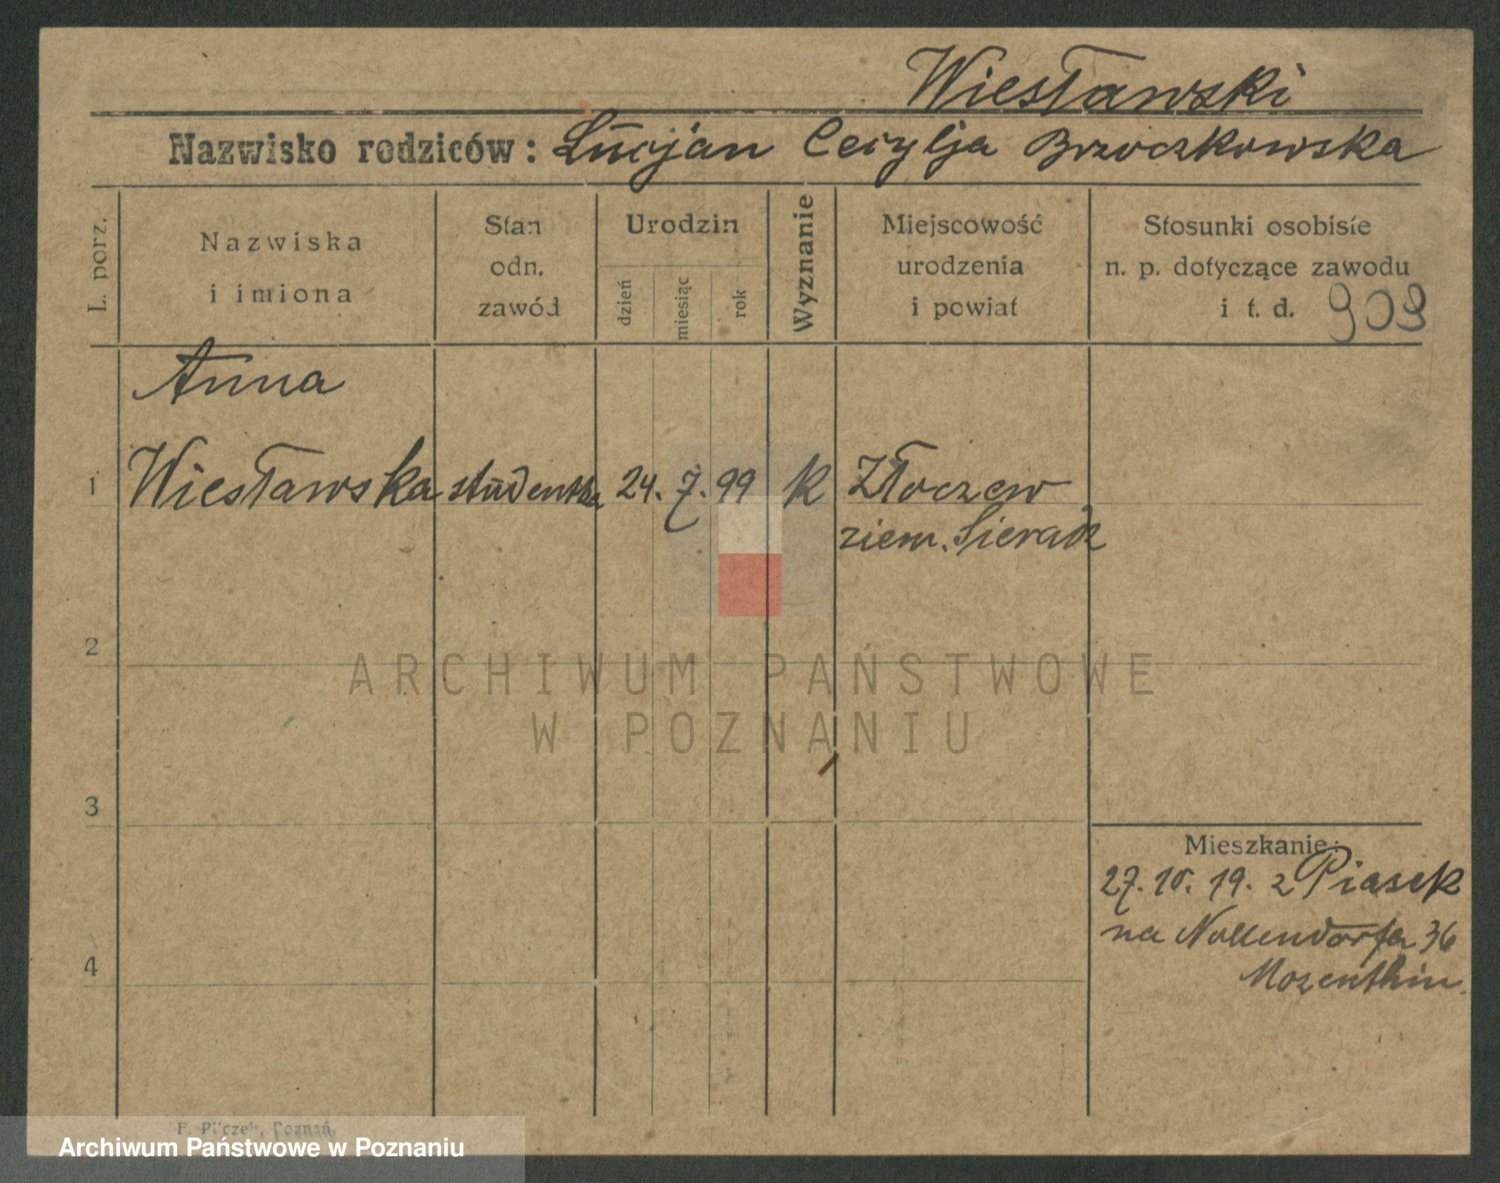 Wiesławski
Nazwisko rodziców: Łucjan Cecylja Brzoczkowska
L. porz.
Nazwiska
i imiona
Stan
odn.
zawód
Urodzin
dzień
miesiąc
rok
Wyznanie
Miejscowość
urodzenia
i powiat
Stosunki osobiste
n. p. dotyczące zawodu
i t. d. 909
Anna
1 Wiesławska studentka 24. 7. 99 k Złoczew
ziem. Sieradz
2
3
Mieszkanie:
27. 10. 19. z Piasek
na Nollendorfa 36
4
Mozenthin.
ARCHIWUM PAŃSTWOWE
W POZNANIU
F. Pilczek, Poznań.
Archiwum Państwowe w Poznaniu